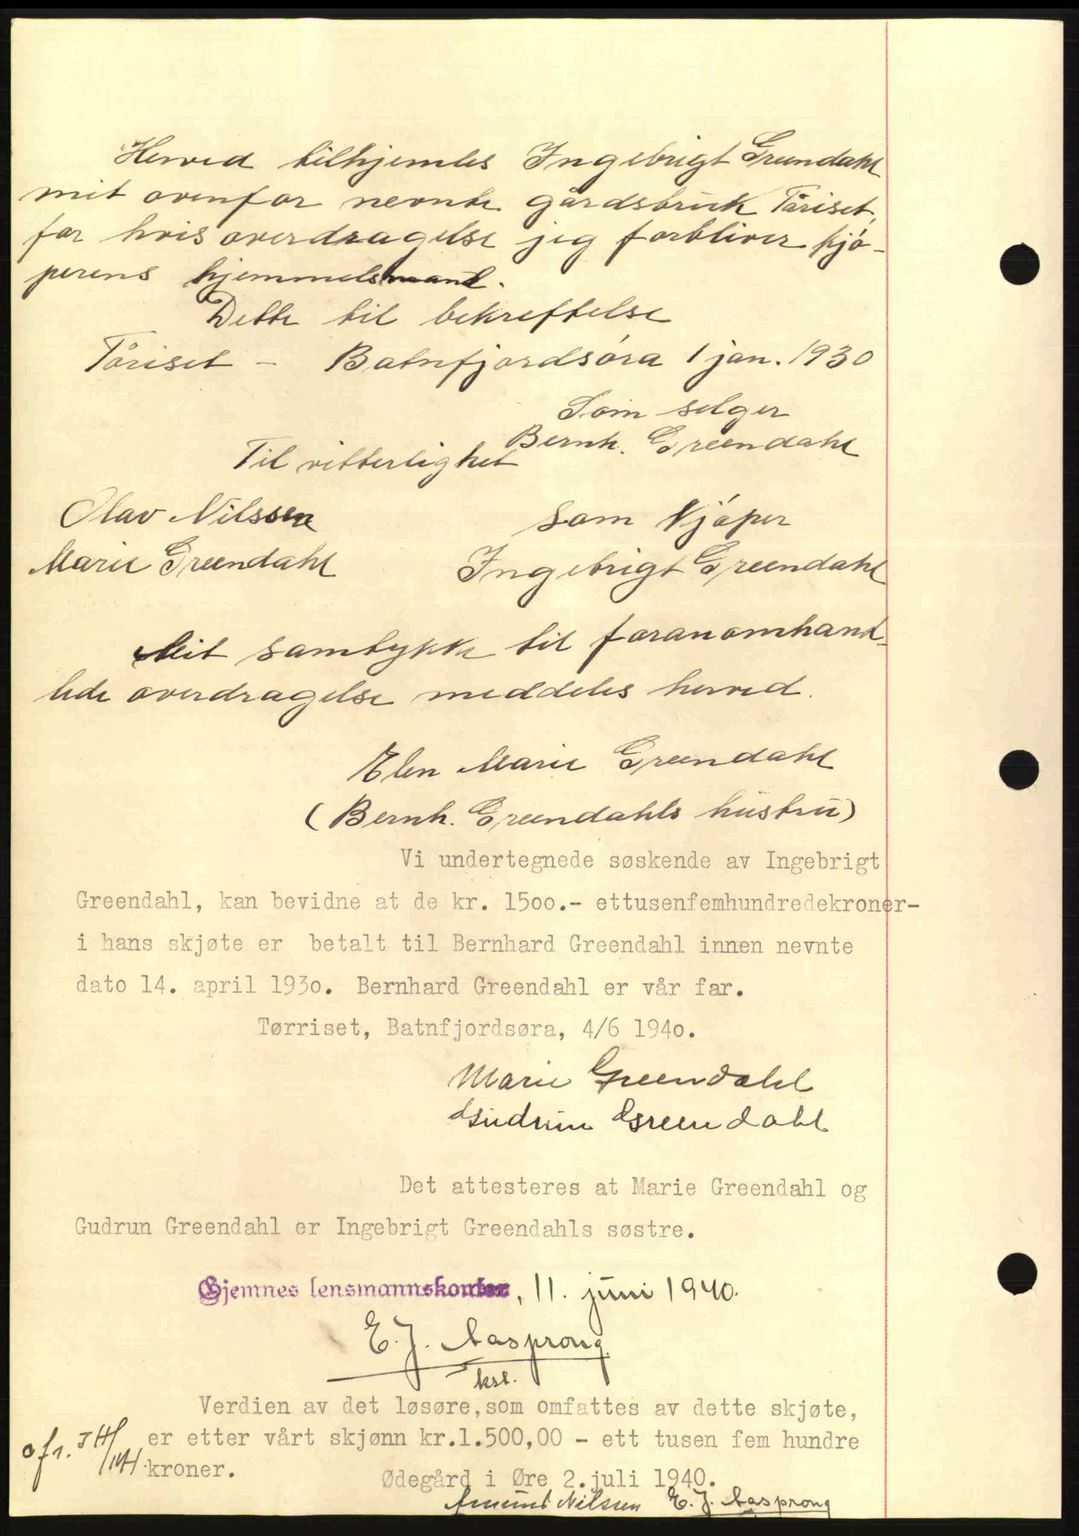 Herved tilhjemles Ingebrigt Greendahl
mit ovenfor nevnte gårdsbruk Tåriset,
for hvis overdragelse jeg forbliver kjø-
perens hjemmelsmand.
Dette til bekreftelse
Tåriset - Batnfjordsøra 1 jan. 1930
Som selger
Bernh. Greendahl
Til vitterlighet
Olav Nilssen
Marie Greendahl
Som Kjøper
Ingebrigt Greendahl
Mit samtykke til foranomhand-
lede overdragelse meddeles herved.
Elen Marie Greendahl
(Bernh. Greendahls hustru)
Vi undertegnede søskende av Ingebrigt
Greendahl, kan bevidne at de kr. 15oo.- ettusenfemhundredekroner-
i hans skjøte er betalt til Bernhard Greendahl innen nevnte
dato 14. april 193o. Bernhard Greendahl er vår far.
Tørriset, Batnfjordsøra, 4/6 194o.
Marie Greendahl
Gudrun Greendahl
Det attesteres at Marie Greendahl og
Gudrun Greendahl er Ingebrigt Greendahls søstre.
Gjemnes lensmannskontor, 11. juni 1940.
E. J. Aasprong
kst.
Verdien av det løsøre, som omfattes av dette skjøte,
er etter vårt skjønn kr.1.500,00 - ett tusen fem hundre
kroner.
Ødegård i Øre 2.juli 1940.
Amund Nilssen E. J. Aasprong